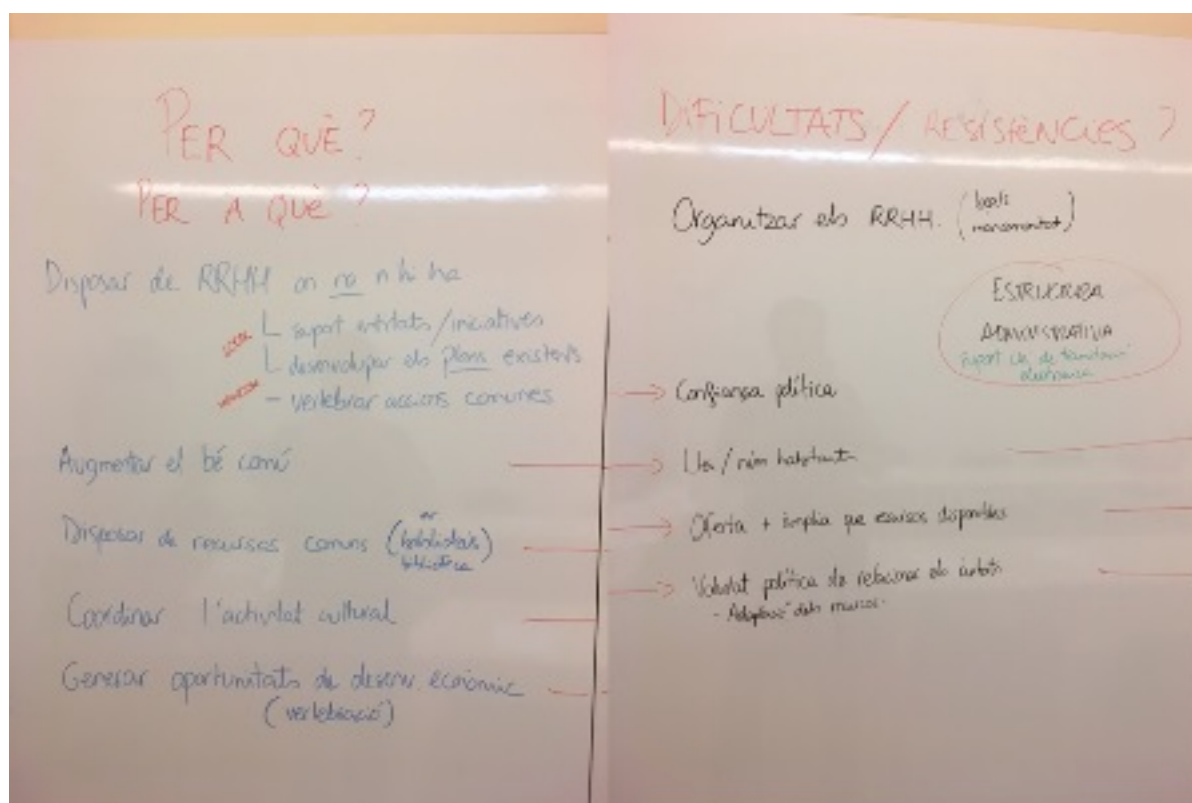 PER QUÈ?
PER A QUÈ?
Disposar de RRHH on no n'hi ha
LOCAL
L suport entitats/iniciatives
L desenvolupar els plans existents
- vertebrar accions comunes
Augmentar el bé comú
Disposar de recursos comuns (
biblioteca)
Coordinar l'activitat cultural
Generar oportunitats de desenv. econòmic
(vertebració)
DIFICULTATS / RESISTÈNCIES?
Organitzar els RRHH. (locals
mancomunitat)
ESTRUCTURA
ADMINISTRATIVA
suport de
Confiança política
Llei / núm habitants
Oferta + àmplia que recursos disponibles
Voluntat política de relacionar els àmbits
- Adaptació dels marcs.